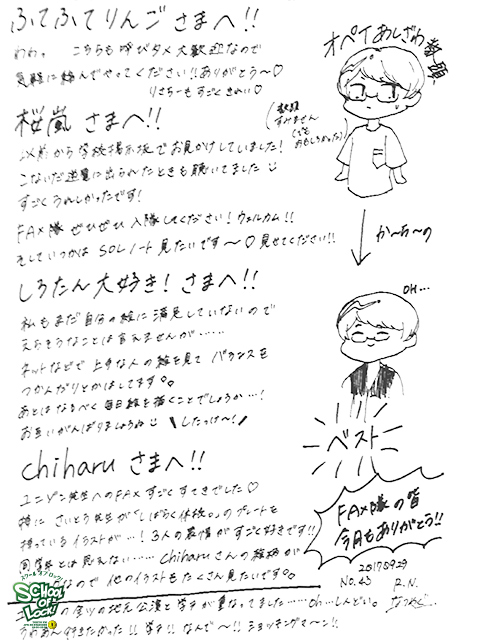 ふてふてりんご さまへ!!
わわ。 こちらも呼びタメ大歓迎なので
気軽に絡んでやってください!!ありがとう〜♡
りさちーもすごくきれい♡
桜嵐 さまへ!!
以前から学校掲示板でお見かけしていました!
こないだ逆電に出られたときも聴いてました
すごくうれしかったです!
FAX隊 ぜひぜひ 入隊してください! ウェルカム!!
そしていつかは SOLノート 見たいです〜♡見せてください!!
しろたん大好き! さまへ!!
私もまだ自分の絵に満足していないので
えらそうなことは言えませんが……
ネットなどで上手な人の絵を見て バランスを
つかんだりとかはしてます。。
あとは なるべく 毎日絵を描くことでしょうか…!
お互いがんばりましょうね \したっけ〜!/
chiharu さまへ!!
ユニゾン先生へのFAX すごくすてきでした♡
特に さいとう先生が「しばらく休校。」のプレートを
持っているイラストが…! 3人の表情がすごく好きです!!
同学年とは思えない…… chiharuさんの絵柄が
なので 他のイラストもたくさん見たいです。。
の地元公演と学テが重なってました……oh…しんどい。
行きたかった!! 学テ!! なんで〜!! ショッキングマ〜ン!!
オペイあしざわ教頭
(教頭
すみません
(でも
おもしろかった))
か〜ち〜の
OH…
ベスト
FAX隊の皆
今月もありがとう!!
20170929
No.43
R.N.
スクールオブロック!
SCHOOL
OF
LOCK!